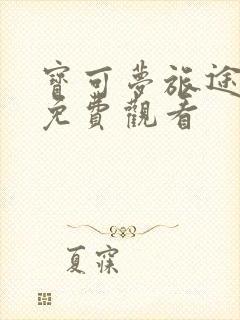 寶可夢旅途
免費觀看
夏寐